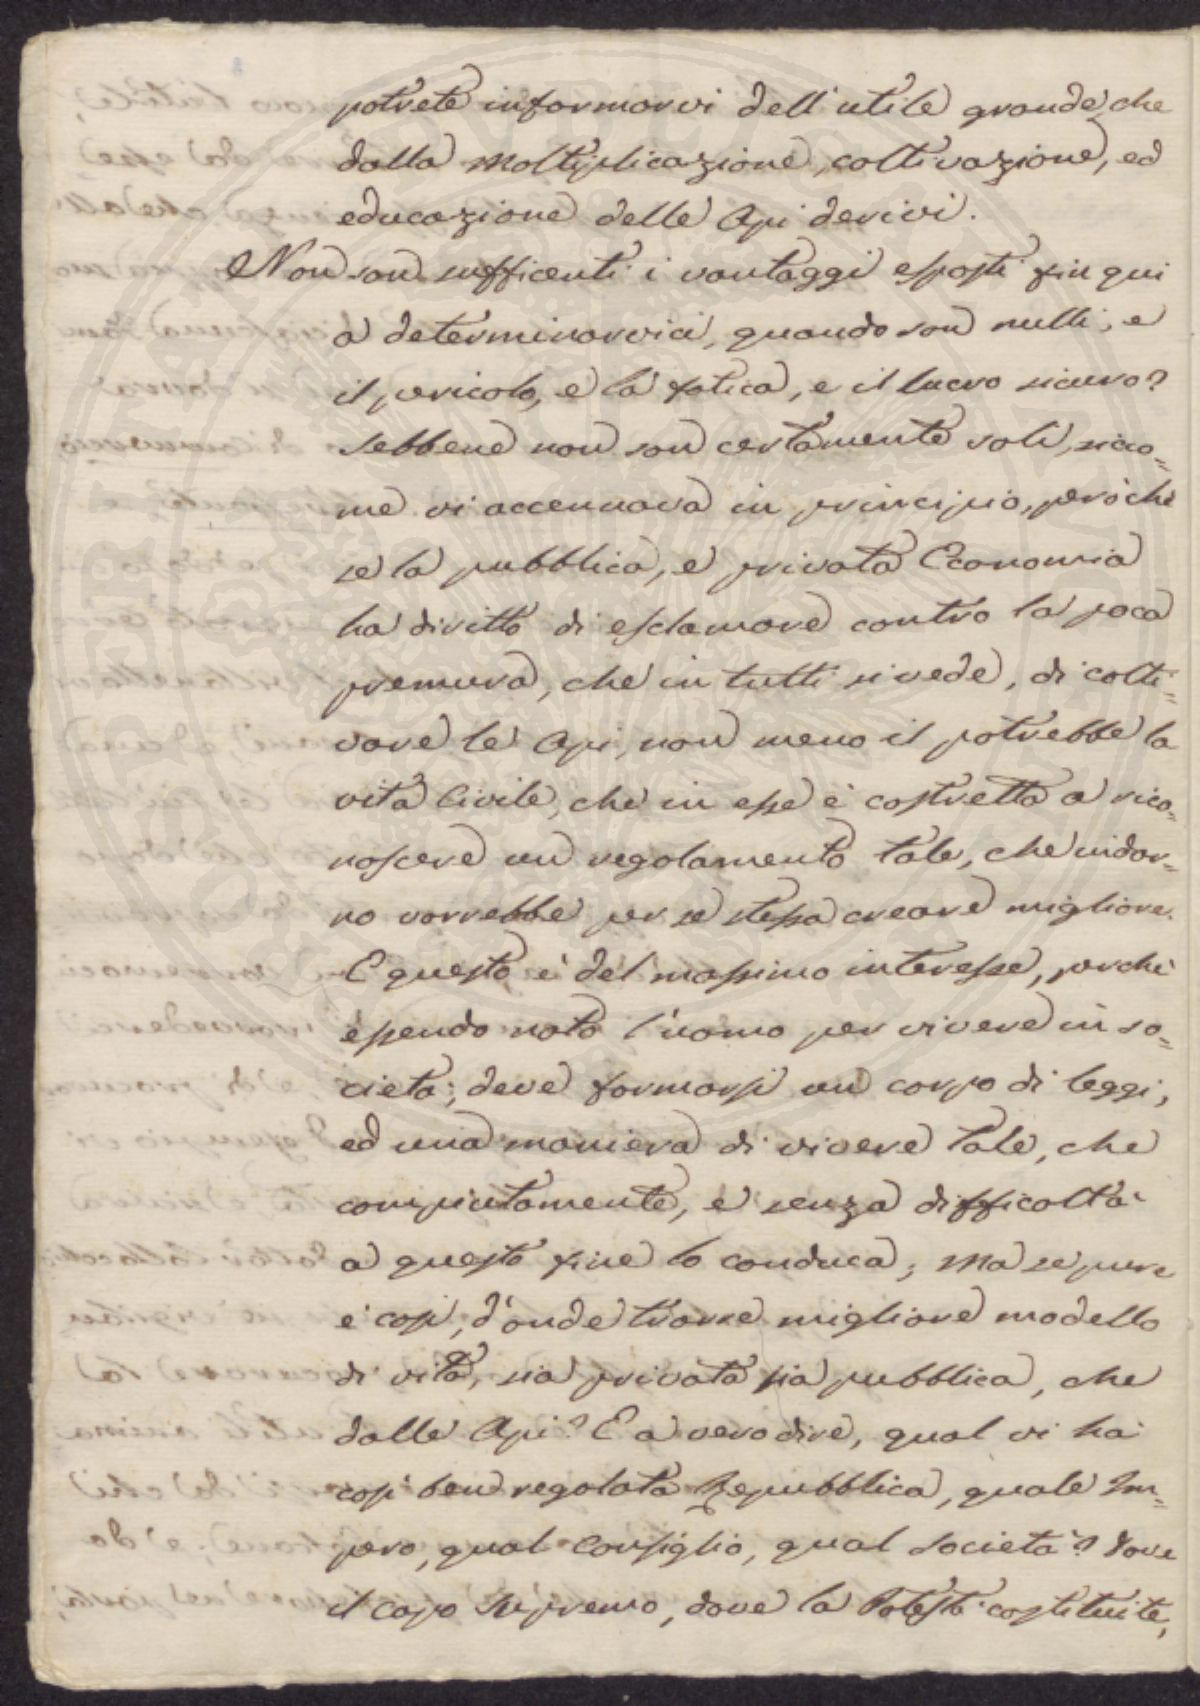 potrete informarvi dell'utile grande, che
dalla moltiplicazione, coltivazione, ed
educazione delle Api derivi.
Non son sufficenti i vantaggi esposti fin qui
a determinarvici, quando son nulli, e
il pericolo, e la fatica, e il lucro sicuro?
Sebbene non son certamente soli, sicco=
me vi accennava in principio, però che
se la pubblica, e privata Economia
ha diritto di esclamare contro la poca
premura, che in tutti si vede, di colti=
vare le Api, non meno il potrebbe la
vita Civile, che in esse è costretta a rico=
noscere un regolamento tale, che indar=
no vorrebbe per se stessa creare migliore.
E questo è del massimo interesse, perchè
essendo nato l'uomo per vivere in so=
cietà; deve formarsi un corpo di leggi,
ed una maniera di vivere tale, che
compiutamente, e senza difficoltà
a questo fine lo conduca; ma se pure
è così, d'onde trarre migliore modello
di vita, sia privata sia pubblica, che
dalle Api? E a vero dire, qual vi ha
così ben regolata Repubblica, quale Im=
pero, qual Consiglio, qual Società? dove
il capo Supremo, dove la Potestà costituite,